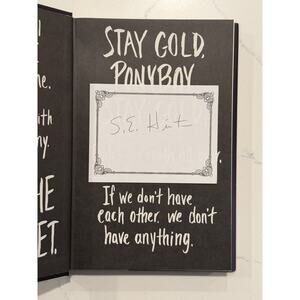 STAY GOLD,
PONYBOY
STAY GOLD
S.E. Hint
If we don't have
each other, we don't
have anything.
ne.
ith
ny.
HE
ET.